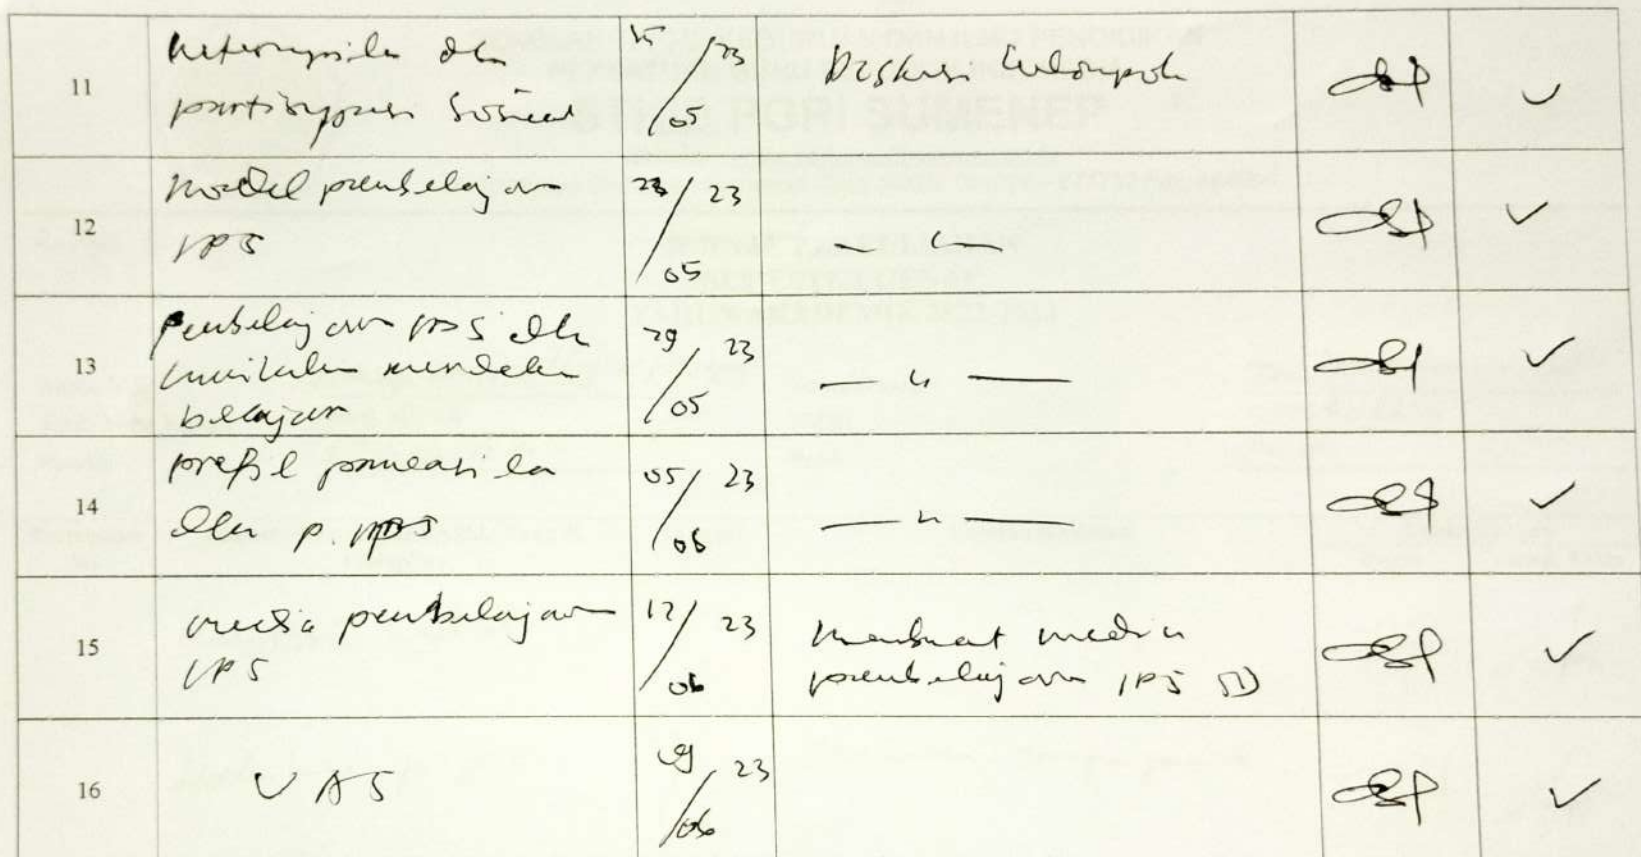 11
dlm
partisipasi sosial
15/05 23
Diskusi kelompok
12
Model pembelajaran
IPS
22/05 23
— " —
13
Pembelajaran IPS dlm
kurikulum merdeka
belajar
29/05 23
— " —
14
profil pancasila
dlm p. IPS
05/06 23
— " —
15
media pembelajaran
IPS
12/06 23
Membuat media
pembelajaran IPS SD
16
UAS
/06 23